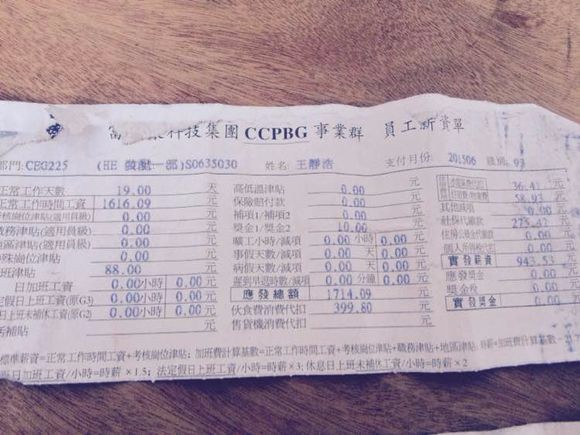 科技集團 CCPBG 事業群 員工薪資單
部門: CEG225 S0635030 姓名: 王靜浩 支付月份 201506 級別: 93
正常工作天數 19.00 天 高低溫津貼 0.00 元 36.41 元
正常工作時間工資 1616.09 元 保險賠付款 0.00 元 58.93 元
考核崗位津貼(適用員級) 0.00 元 補項1/補項2 0.00 元 其他減項 0.00 元
職務津貼(適用員級) 0.00 元 獎金1/獎金2 10.00 元 社保代繳款 元
地區津貼(適用員級) 0.00 元 曠工小時/減項 0.00 小時 0.00 元
特殊崗位津貼 0.00 元 事假天數/減項 0.00 天 0.00 元 個人所得稅代扣 元
班津貼 88.00 元 病假天數/減項 0.00 天 0.00 元 實發薪資 943.53 元
日加班工資 0.00 小時 0.00 元 遲到早退時數/減項 0.00 分鐘 0.00 元 應發獎金 元
定假日上班工資(原G3) 0.00 小時 0.00 元 應發總額 1714.09 元 獎金稅 元
日上班未補休工資(原G2) 0.00 小時 0.00 元 伙食費消費代扣 399.80 元 實發獎金 元
活補貼 元 售貨機消費代扣 元
標準薪資=正常工作時間工資+考核崗位津貼; 加班費計算基數=正常工作時間工資+考核崗位津貼+職務津貼+地區津貼; 時薪=加班費計算基數
班日加班工資/小時=時薪×1.5; 法定假日上班工資/小時=時薪×3; 休息日上班未補休工資/小時=時薪×2